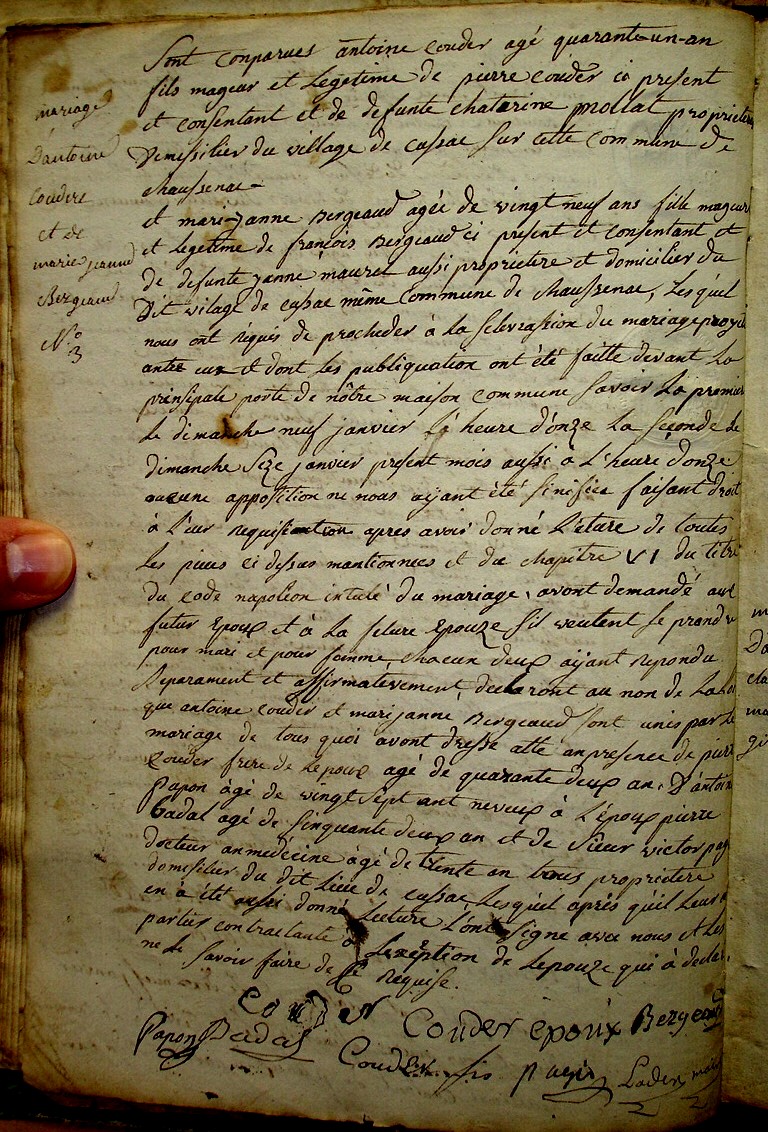 mariage
D'antoine
Couderc
et de
marie jeanne
Bergeaud
N.o
3
Sont conparues antoine couder agé quarante-un-an
fils mageur et Legetime de pierre couder ci present
et consentant et de defunte chaterine prollat proprietere
Demissilier du village de cussac sur cette commune de
chaussenac
et mari-janne Bergeaud agée de vingt neuf ans fille mageure
et Legetime de françois Bergeaud ci present et consentant et
de defunte janne mauret aussi proprietere et domicilier du
Dit vilage de cussac même commune de chaussenac, Les quel
nous ont requis de procheder à La selebrassion du mariage
antre eux et dont les publiquation ont été faitte devant La
prinsipale porte de nôtre maison commune savoir La premier
Le dimanche neuf janvier à heure d'onze La seconde Le
dimanche seze janvier present mois aussi à L'heure d'onze
aucune apposition ne nous aÿant été sinifiée faisant droit
à L'eur requisition apres avoir donné L'eture de toutes
Les pieces ci dessus mantionnees et du chapitre VI du titre
du code napoleon intulé du mariage, avont demandé aux
futur Epoux et à La future Epouze s'il veutent se prandre
pour mari et pour famme, chacun deux aÿant repondu
separament et affirmativement, declaront au non de La Loi
que antoine couder et marijanne Bergeaud sont unis par Le
mariage de tous quoi avont dressé atte an presence de pierre
couder frere de L'epoux agé de quarante deux an, D'antoine
Papon âgé de vingt sept ant neveux à L'époux pierre
Dadal agé de sinquante deux an et de sieur victor
docteur an médecine âgé de trente an tous proprietere
domisilier du dit Lieu de cussac Lesquel après qu'il Leur
en à été aussi donné Lecture L'ont signe avec nous et Les
parties contractante à L'exéption de L'epouze qui à declaré
ne Le savoir faire de ce requise.
Couder
Couder epoux Bergeaud
Papon Dadal Couder